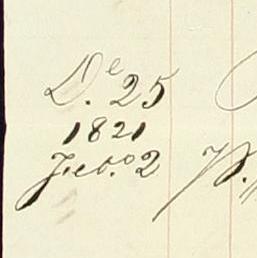 D.e 25
1821
Feb.o 2